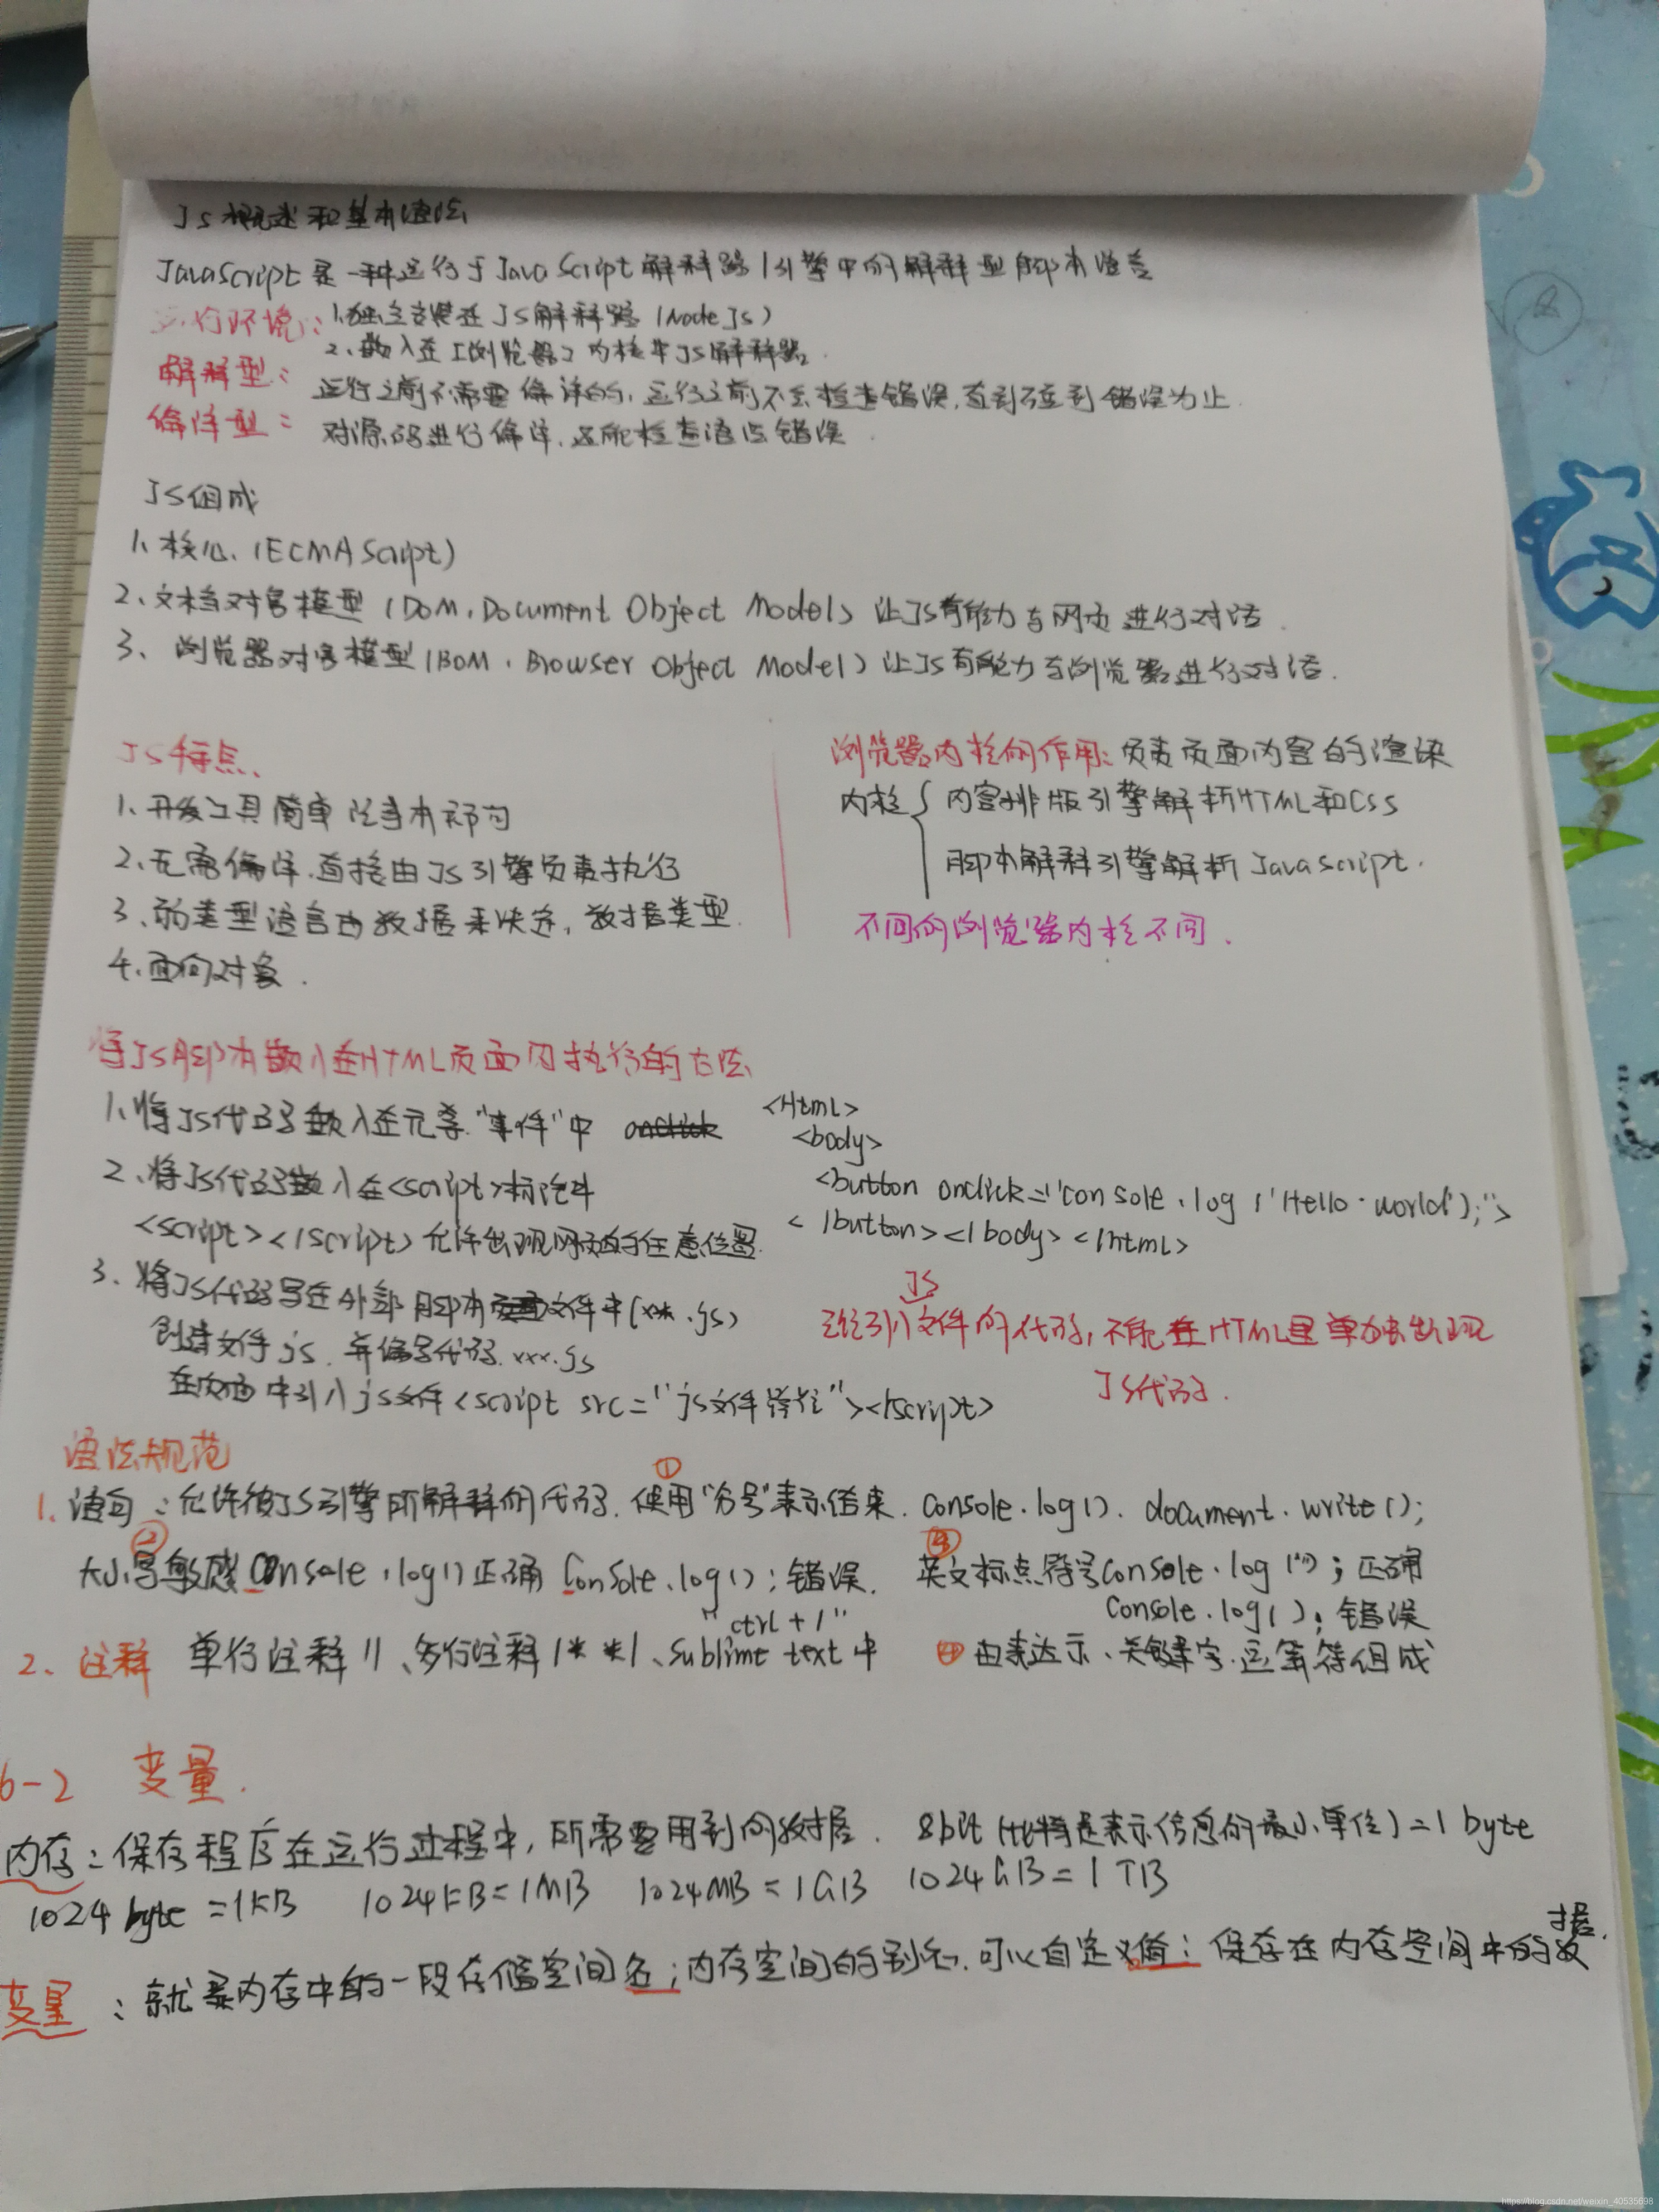 JS概述和基本语法
JavaScript是一种运行于JavaScript解释器/引擎中的解释型脚本语言
运行环境: 1.独立安装在JS解释器(NodeJs)
2、嵌入在[浏览器]内核中JS解释器.
解释型: 运行之前不需要编译的, 运行之前不会检查错误,直到碰到错误为止.
编译型: 对源码进行编译,还能检查语法错误.
JS组成
1、核心.(ECMAScript)
2、文档对象模型(DOM,Document Object Model) 让JS有能力与网页进行对话.
3、浏览器对象模型(BOM.Browser Object Model)让JS有能力与浏览器进行对话.
JS特点、
1、开发工具简单 记事本即可
2、无需编译,直接由JS引擎负责执行
3、弱类型语言由数据来决定,数据类型.
4、面向对象.
浏览器内核的作用: 负责页面内容的渲染
内核{ 内容排版引擎解析HTML和CSS
脚本解释引擎解析JavaScript.
不同的浏览器内核不同.
将JS脚本嵌入在HTML页面内执行的方法
1、将JS代码嵌入在元素"事件"中 onclick
2、将JS代码嵌入在<script>标记中
<script></script>允许出现网页的任意位置.
<Html>
<body>
<button onclick="console.log('Hello·world');">
</button></body></html>
3、将JS代码写在外部脚本文件中(xx.js)
创建文件js.并编写代码.xxx.js
在页面中引入js文件<script src="js文件路径"></script>
JS
引入文件的代码,不能在HTML里单独出现
JS代码.
语法规范
1.语句:允许被JS引擎所解释的代码.①使用"分号"表示结束.console.log().document.write();
②大小写敏感console.log()正确 Console.log();错误.
③英文标点符号console.log('');正确
console.log();错误
2、注释 单行注释//、多行注释/* */、sublime text中"ctrl+/"
④由表达示、关键字.运算符组成
6-2 变量.
内存:保存程序在运行过程中,所需要用到的数据. 8bit(比特是表示信息的最小单位)=1 byte
1024 byte=1KB 1024KB=1MB 1024MB=1GB 1024GB=1TB
变量:就是内存中的一段存储空间名;内存空间的别名.可以自定义值:保存在内存空间中的数据.
https://blog.csdn.net/weixin_40535698